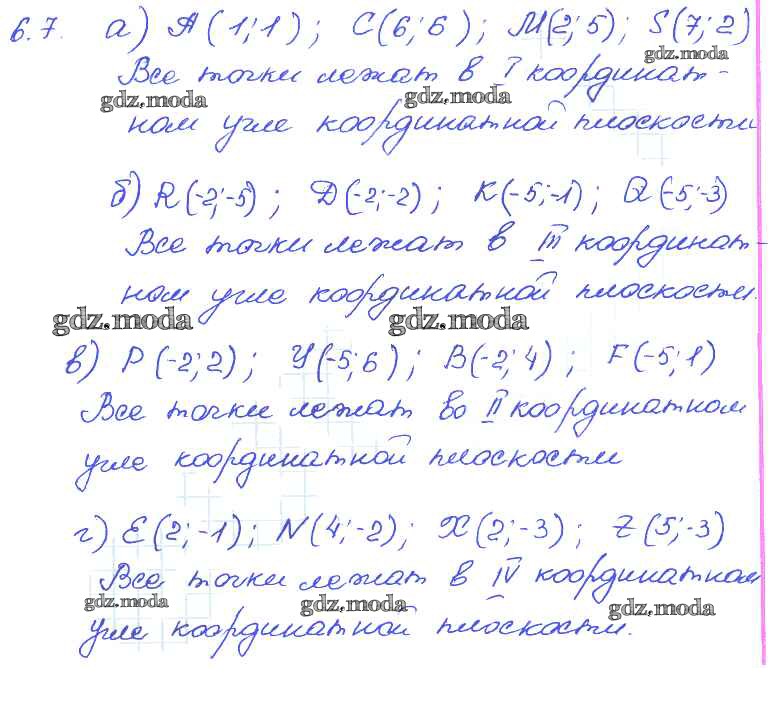 6.7. а) A(1;1); C(6;6); M(2;5); S(7;2)
gdz.moda
Все точки лежат в I координат-
gdz.moda gdz.moda
ном угле координатной плоскости
б) R(-2;-5); D(-2;-2); K(-5;-1); Q(-5;-3)
Все точки лежат в III координат-
ном угле координатной плоскости.
gdz.moda gdz.moda
в) P(-2;2); У(-5;6); B(-2;4); F(-5;1)
Все точки лежат во II координатном
угле координатной плоскости
г) E(2;-1); N(4;-2); X(2;-3); Z(5;-3)
Все точки лежат в IV координатном
gdz.moda gdz.moda gdz.moda
угле координатной плоскости.